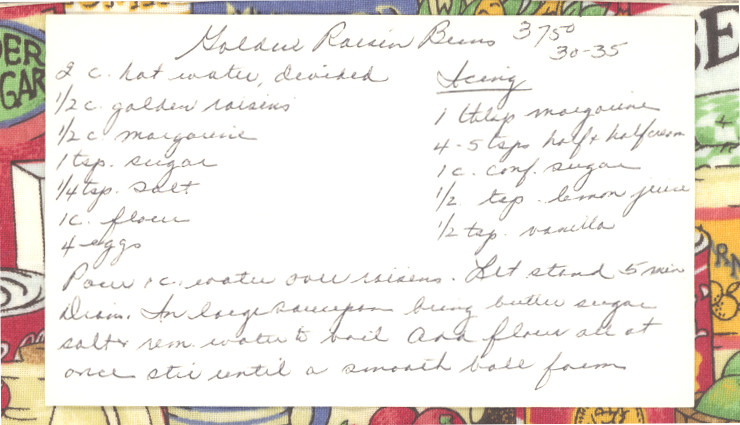 Golden Raisin Buns 375°
30-35
2 c. hot water, devided
1/2 c. golden raisins
1/2 c. margarine
1 tsp. sugar
1/4 tsp. salt
1c. flour
4 eggs
Icing
1 tblsp margarine
4-5 tsps half + half cream
1 c. conf. sugar
1/2 tsp. lemon juice
1/2 tsp. vanilla
Pour 1 c. water over raisens. Let stand 5 min
Drain. In large saucepan bring butter sugar
salt + rem. water to boil add flour all at
once stir until a smooth ball form
DER
GAR
E
RN